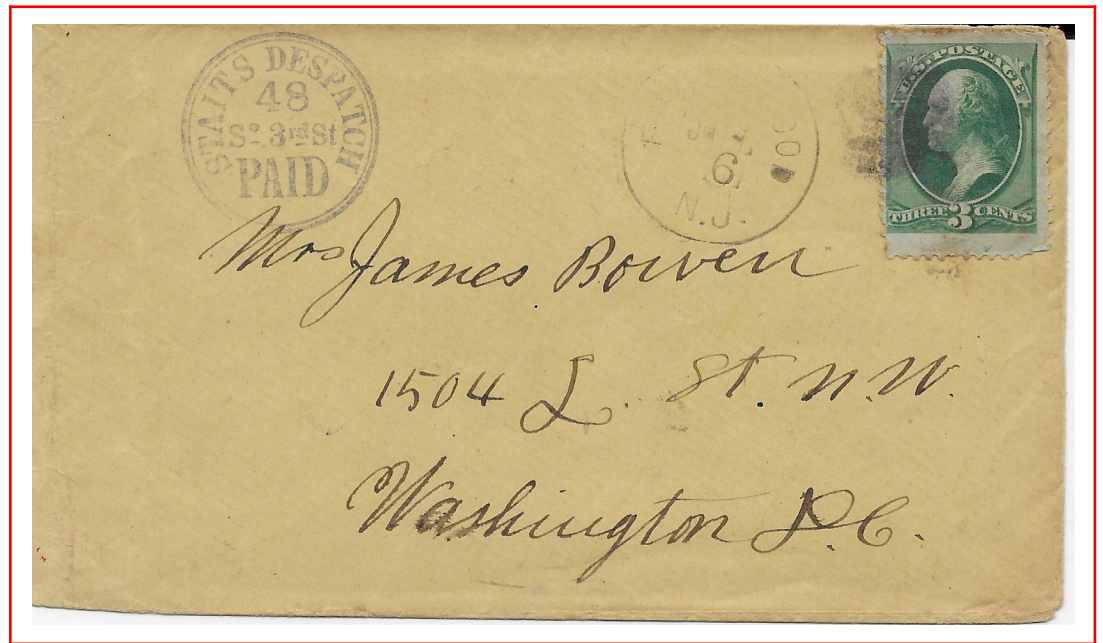 STAITS DESPATCH
48
So. 3rd St
PAID
6
N.J.
U.S. POSTAGE
THREE 3 CENTS
Mrs James Bowen
1504 L St. N.W.
Washington D.C.